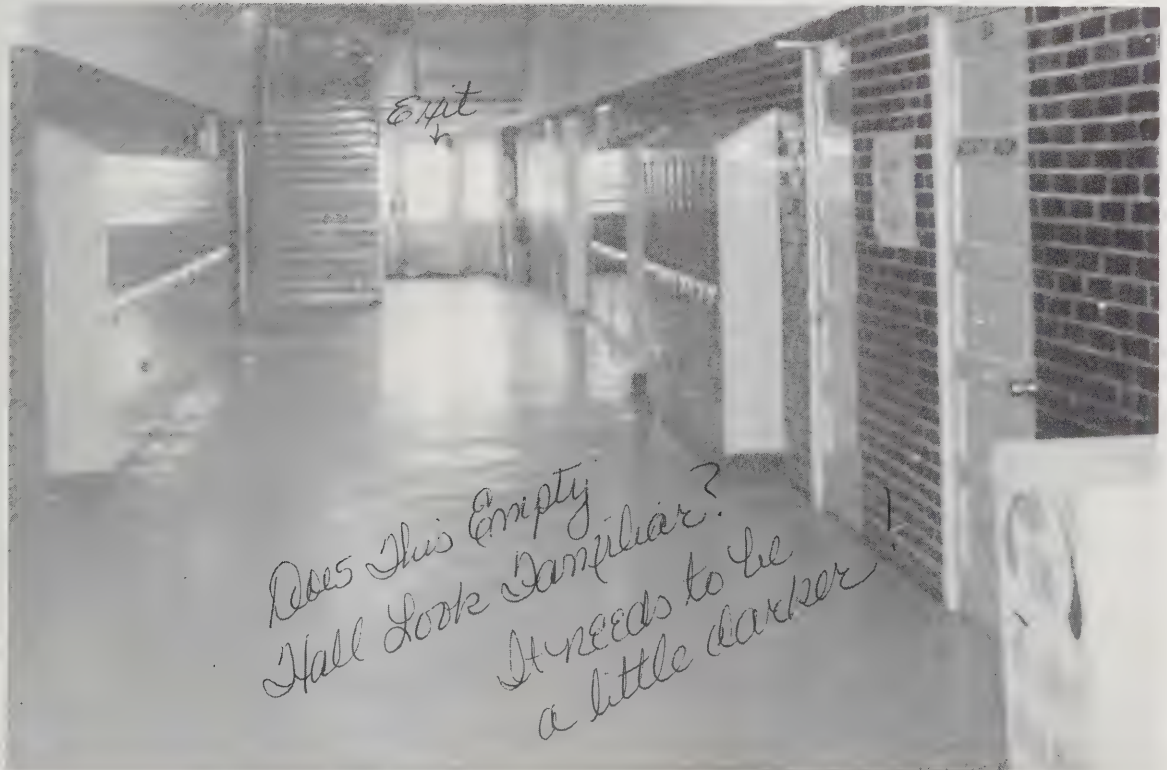 Exit
Does This Empty
Hall Look Familiar?
It needs to be
a little darker